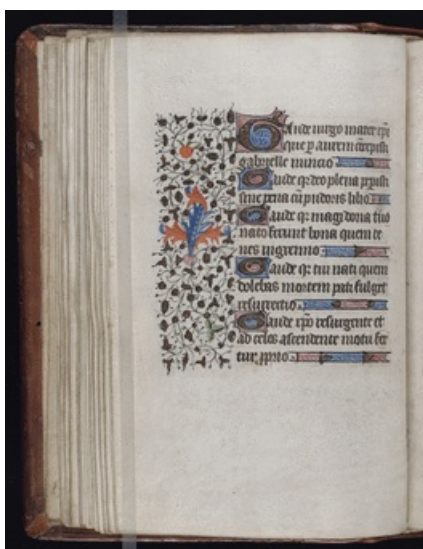 Gaude virgo mater xpi
que p aurem concepisti
gabrielle nuncio
Gaude qr deo plena peperisti
sine pena cu pudoris lilio
Gaude qr magi dona tuo
nato ferunt bona quem te
nes in gremio
Gaude qr tui nati quem
dolebas mortem pati fulget
resurrectio
Gaude xpo resurgente et
ad celos ascendente motu fer
tur pprio